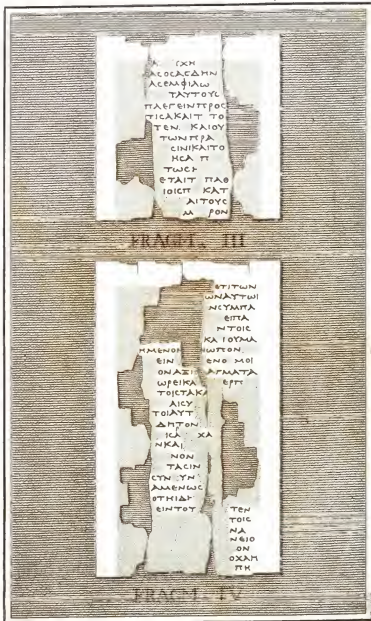 Α ΣΧΗ
ΑΣΟΣΑΣΔΗΝ
ΑΣΕΜΦΙΛΩ
ΤΑΥΤΟΥΣ
ΠΛΕΓΕΙΝΠΡΟΣ
ΤΙΣΑΚΑΙΤ ΤΟ
ΤΕΝ. ΚΑΙΟΥ
ΤΩΝΠΡΑ
ΣΙΝΙΚΑΙΤΟ
ΗΣΑ Π
ΤΩΣΗ
ΕΤΑΙΤ ΠΑΘ
ΙΟΙΣΠ ΚΑΤ
ΑΙΤΟΥΣ
Μ ΡΟΝ
FRAGM. III
ΕΤΙΤΩΝ
ΩΝΑΥΤΩΙ
ΝΣΥΜΠΑ
ΕΙΠΑ
ΝΤΟΙΣ
ΚΑ ΙΟΥΜΑ
ΗΜΕΝΟΝ ΝΩΠΟΝ.
ΕΙΝ ΕΝΟ ΜΟΙ
ΟΝΑΞΙ ΑΓΜΑΤΑ
ΩΡΕΙΚΑ ΕΡΠ
ΤΟΙΣΤΑΚΑ
ΑΙΣΥ
ΤΟΙΑΥΤ
ΔΗΤΟΝ
ΙΣΑ ΧΑ
ΝΚΑΙ
ΝΟΝ
ΤΑΣΙΝ
ΣΥΝ ΥΝ
ΑΜΕΝΩΣ
ΟΤΗΙΔΗ
ΕΙΝΤΟΥ ΤΕΝ
ΤΟΙΣ
ΝΑ
ΝΕΙΟ
ΟΝ
ΟΧΛΗ
ΠΗ
FRAGM. IV